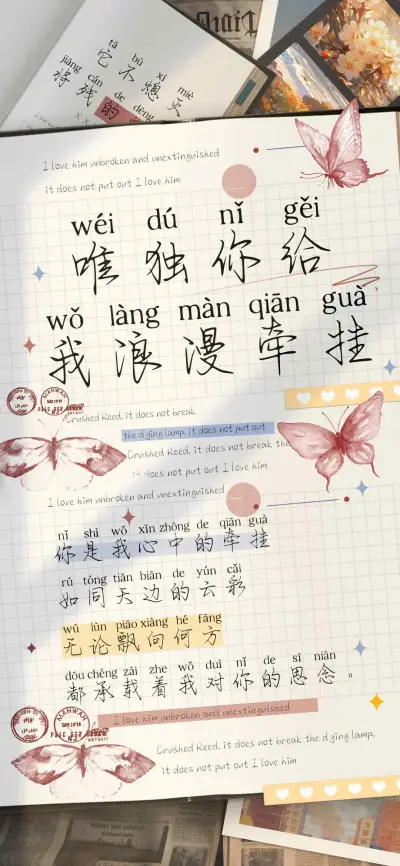 tā bù xī miè
它不熄灭
jiāng cán de dēng
将残的
I love him unbroken and unextinguished
it does not put out I love him
wéi dú nǐ gěi
唯独你给
wǒ làng màn qiān guà
我浪漫牵挂
MANWAN
Crushed Reed, it does not break
the dying lamp, it does not put out
Crushed Reed, it does not break the
it does not put out I love him
I love him unbroken and unextinguished
nǐ shì wǒ xīn zhōng de qiān guà
你是我心中的牵挂
rú tóng tiān biān de yún cǎi
如同天边的云彩
wú lùn piāo xiàng hé fāng
无论飘向何方
dōu chéng zài zhe wǒ duì nǐ de sī niàn
都承载着我对你的思念。
I love him unbroken and unextinguished
MANWAN
Crushed Reed, it does not break the dying lamp,
it does not put out I love him